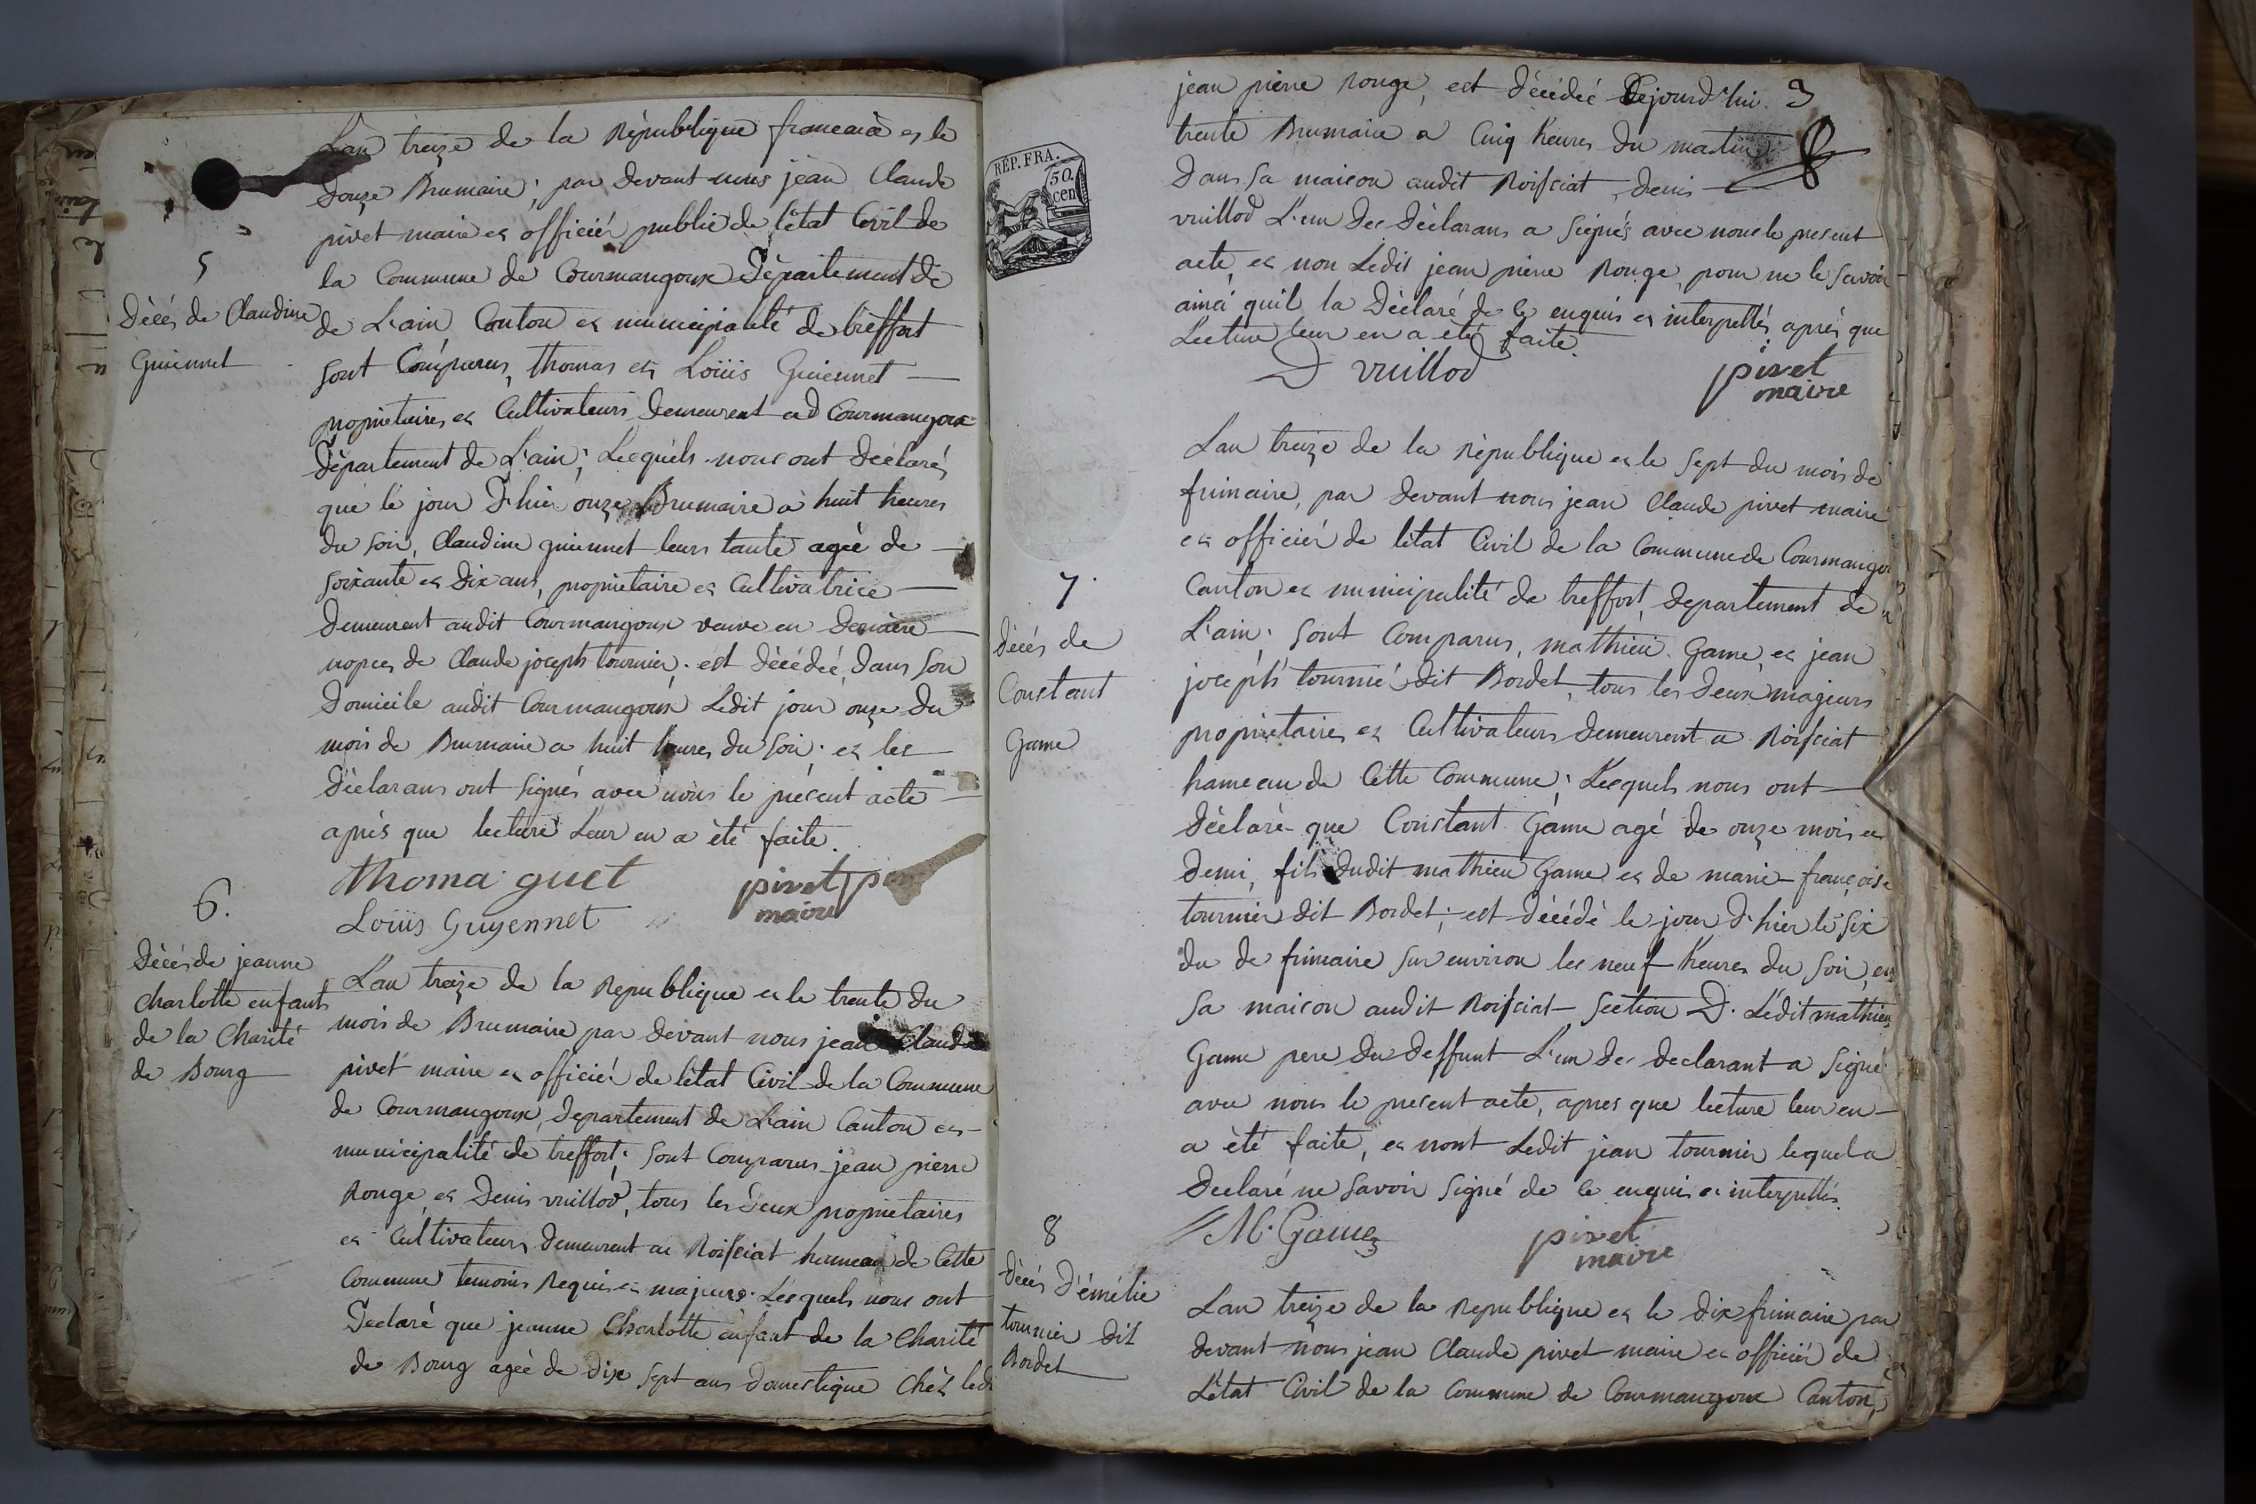 L'an treize de la République francaise et le
douze Brumaire, par devant nous jean Claude
pivet maire et officiér public de l'état Civil de
la Commune de Courmangoux Département de
5
Décés de Claudine
Guiennet
de L'ain Canton et municipalité de treffort
sont Comparus, thomas et Loüis Guiennet
propriétaires et Cultivateurs demeurent ad Courmangoux
Département de L'ain; Lesquéls nous ont déclarés
que lé jour d'hier onze Brumaire a huit heures
du soir, Claudine guiennet leurs tante agée de
soixante et dix ans, proprietaire et Cultivatrice
demeurent audit Courmangoux veuve en derniere
nopces de Claude joseph tournier, est décédeé, dans son
Domicile audit Courmangoux Ledit jour onze du
mois de Brumaire a huit heures du soir; et les
Déclarans ont signés avec nous le présent acte
aprés que lecture leur en a été faite.
thoma guet
pivet
maire
Loüis Guyennet
6.
Décés de jeanne
Charlotte enfant
de la Charité
de Bourg
L'an treize de la Republique et le trente du
mois de Brumaire par devant nous jean Claude
pivet maire et officiér de l'état Civil de la Commune
de Courmangoux, Departement de L'ain Canton et
municipalité de treffort; sont Comparus jean pierre
Rouge, et Denis vuillod, tous les deux propriétaires
et Cultivateurs demeurent au Roissiat hameau de Cette
Commune temoins Requis et majeurs. Lesquels nous ont
Declaré que jeanne Charlotte enfant de la Charité
de Bourg ageé de dix sept ans domestique chéz ledi
jean pierre Rouge, est décédeé Dejourd'hui
3
trente Brumaire a Cinq heures du matin
dans sa maison audit Roissiat, denis
vuillod L'un des déclarans a signés avec nous le present
acte, et non Ledit jean pierre Rouge, pour ne le savoir
ainsi quil la Déclaré de ce enquis et interpellés, aprés que
Lecture leur en a été faite.
D vuillod
pivet
maire
REP. FRA.
50
cen
L'an treize de la République et le sept du mois de
frimaire, par devant nous jean Claude pivet maire
et officiér de l'état Civil de la Commune de Courmangou
7.
Décés de
Constant
Game
Canton et municipalité de treffort, departement de
L'ain; sont Comparus, mathieu Game, et jean
joseph tournié dit Bordet, tous les deux majeurs
propriétaires et Cultivateurs demeurent a Roissiat
hameau de Cette Commune; Lesquels nous ont
Déclaré que Constant Game agé de onze mois et
demi, fils dudit mathieu Game et de marie françoise
tournier dit Bordet; est décédé le jour d'hier le six
du de frimaire sur environ les neuf heures du soir, en
sa maison audit Roissiat Section D. Lédit mathieu
Game pere du deffunt L'un des declarant a signé
avec nous le present acte, apres que lecture leur en
a été faite, et nont Ledit jean tournier lequel a
Declaré ne savoir signé de ce enquis et interpellés.
M. Game
pivet
maire
8
Décés D'émélie
tournier dit
Bordet
L'an treize de la Republique et le dix frimaire par
devant nous jean Claude pivet maire et officiér de
L'état Civil de la Commune de Courmangoux Canton